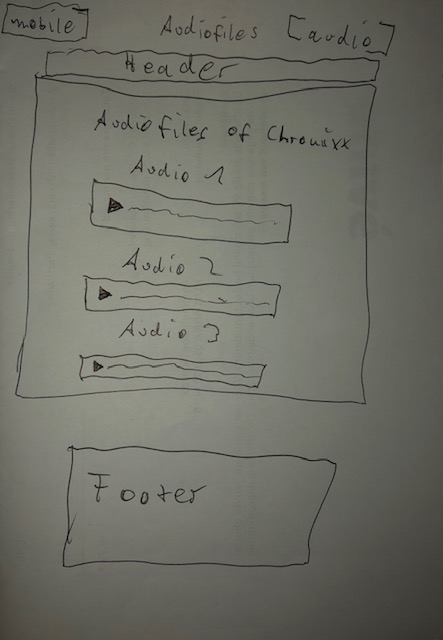 mobile Audiofiles [audio]
Header
Audiofiles of Chronixx
Audio 1
Audio 2
Audio 3
Footer